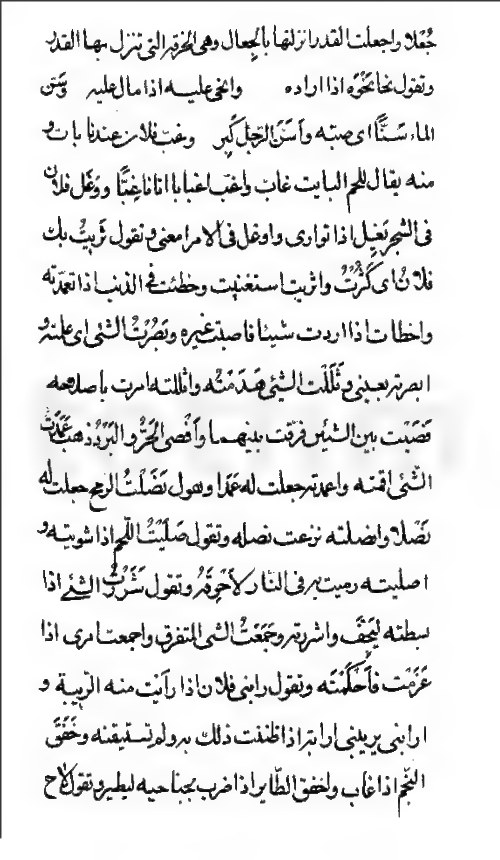 جُعْلا واجعلت القدر انزلتها بالجعال وهى الخرقه التى تنزل بها القدر
وتقول نحا نَحْوَه اذا اراده وانحى عليه اذا مال عليه وسَن
الماء سَنًّا اى صبّه واَسَنّ الرجل كبر وغبّ فلان عندنا بات و
منه يقال للحم البايت غاب واغب اغبابا اتانا غِبًّا ووَغَل فلان
فى الشجر يَغِل اذا توارى واوغل فى الامر امعن وتقول ثَرِيتُ بك
فلان اى كَثُرْتُ واثريت استغنيت وخطئت فى الذنب اذا تعمدته
واخطات اذا اردت شيئا فاصبت غيره وبَصُرْتُ الشئ اى علمته و
ابصرته بعينى وثَلَلْت الشئ هَدَمْتُه واثللته امرت باصلاحه
فَصَيْت بين الشئين فرقت بينهما واَفْصَى الحَرُّ والبَرْد ذهب عَمَدْت
الشئ اقمته واعمدته جعلت له عَمَدًا وتقول نَصَلْتُ الرمح جعلت له
نَصْلا وانصلته نزعت نصله وتقول صَلَيْتُ اللّحم اذا شويته و
اصليته رميت به فى النار لاَحْرِقَه وتقول شَرَرْتُ الشئ اذا
بسطته ليَجِفّ واشررته وجَمَعْتُ الشئ المتفرق واجمعت امرى اذا
عَزَمْت فأحْكَمْتَه وتقول رابنى فلان اذا رَاَيْت منه الرّيبة و
ارابنى يريبنى ارابة اذا ظننت ذلك به ولم تستيقنه وخَفَقَ
النّجم اذا غاب واخفق الطّاير اذا ضرب بجناحيه ليطير وتقول لاح